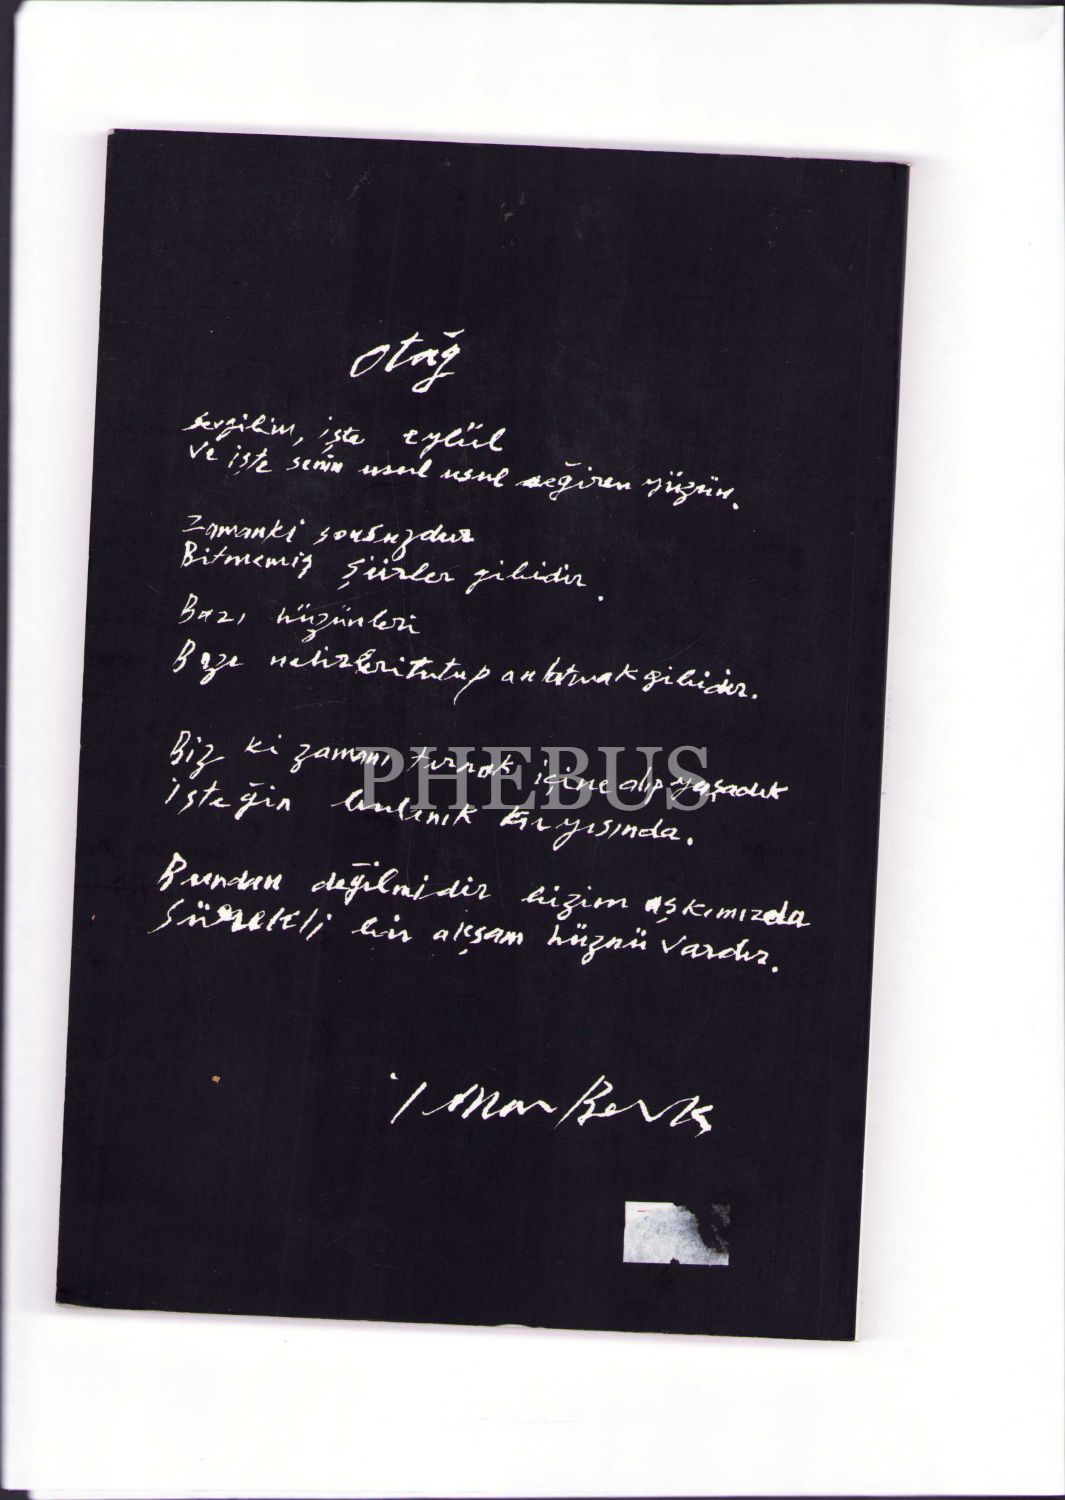 Otağ
Sevgilim, işte eylül
Ve işte senin usul usul seğiren yüzün.
Zamanki sonsuzdur
Bitmemiş şiirler gibidir.
Bazı hüzünleri
Bazı nehirleri tutup anlatmak gibidir.
Biz ki zamanı tırnak içine alıp yaşadık
İsteğin bulanık kıryısında.
Bundan değilmidir bizim aşkımızda
Sürekli bir akşam hüznü vardır.
İlhan Berk
PHEBUS